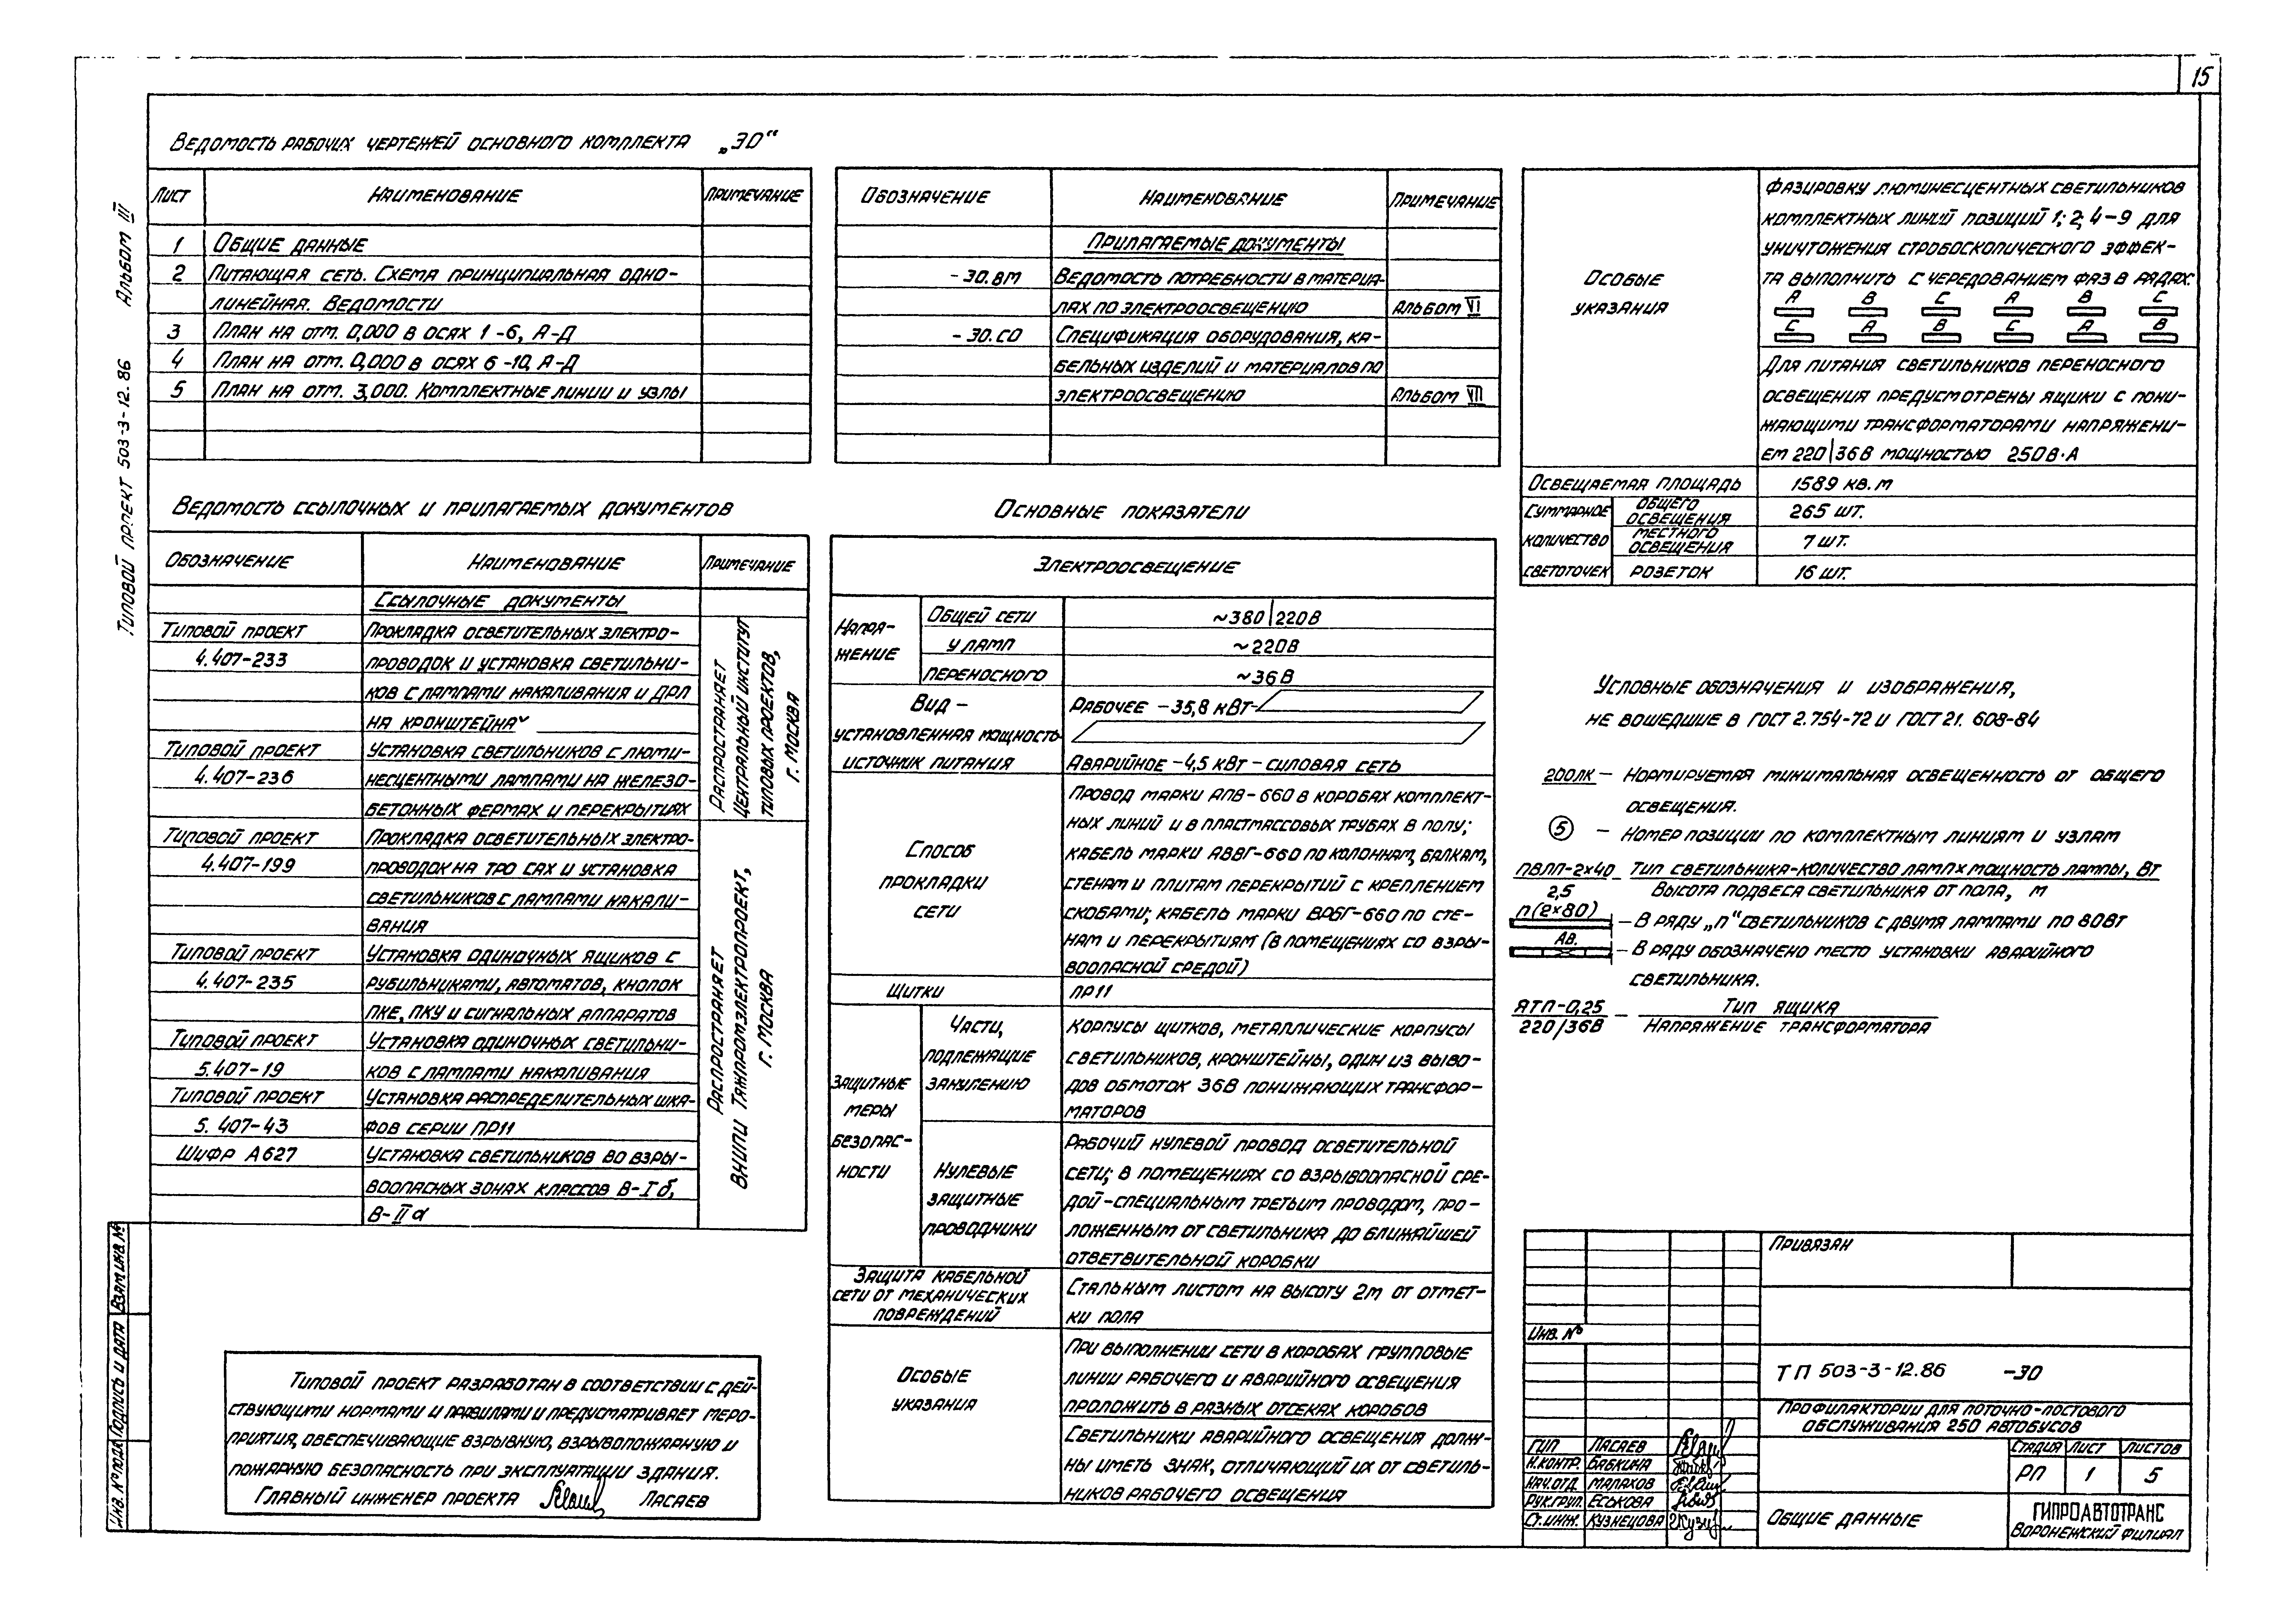 15
Типовой проект 503-3-12.86 Альбом III
Ведомость рабочих чертежей основного комплекта „ЭО“
Лист Наименование Примечание
1 Общие данные
2 Питающая сеть. Схема принципиальная одно-
линейная. Ведомости
3 План на отм. 0,000 в осях 1-6, А-Д
4 План на отм. 0,000 в осях 6-10, А-Д
5 План на отм. 3,000. Комплектные линии и узлы
Ведомость ссылочных и прилагаемых документов
Обозначение Наименование Примечание
Ссылочные документы
Типовой проект Прокладка осветительных электро-
4.407-233 проводок и установка светильни-
ков с лампами накаливания и ДРЛ
на кронштейнах
Типовой проект Установка светильников с люми-
4.407-236 несцентными лампами на железо-
бетонных фермах и перекрытиях
Распространяет
Центральный институт
типовых проектов,
г. Москва
Типовой проект Прокладка осветительных электро-
4.407-199 проводок на тросах и установка
светильников с лампами накали-
вания
Типовой проект Установка одиночных ящиков с
4.407-235 рубильниками, автоматов, кнопок
ПКЕ, ПКУ и сигнальных аппаратов
Типовой проект Установка одиночных светильни-
5.407-19 ков с лампами накаливания
Типовой проект Установка распределительных шка-
5.407-43 фов серии ПР11
Шифр А627 Установка светильников во взры-
воопасных зонах классов В-Iб,
В-IIа
Распространяет
ВНИПИ Тяжпромэлектропроект,
г. Москва
Типовой проект разработан в соответствии с дей-
ствующими нормами и правилами и предусматривает меро-
приятия, обеспечивающие взрывную, взрывопожарную и
пожарную безопасность при эксплуатации здания.
Главный инженер проекта Ласаев
Обозначение Наименование Примечание
Прилагаемые документы
-ЭО.ВМ Ведомость потребности в материа-
лах по электроосвещению Альбом VI
-ЭО.СО Спецификация оборудования, ка-
бельных изделий и материалов по
электроосвещению Альбом VII
Основные показатели
Электроосвещение
Напря-
жение
Общей сети ~380/220В
У ламп ~220В
Переносного ~36В
Вид – Рабочее – 35,8 кВт-
установленная мощность
источник питания Аварийное – 4,5 кВт – силовая сеть
Способ
прокладки
сети
Провод марки АПВ-660 в коробах комплект-
ных линий и в пластмассовых трубах в полу;
кабель марки АВВГ-660 по колоннам, балкам,
стенам и плитам перекрытий с креплением
скобами; кабель марки ВРБГ-660 по сте-
нам и перекрытиям (в помещениях со взры-
воопасной средой)
Щитки ПР11
Защитные
меры
безопас-
ности
Части,
подлежащие
занулению
Корпусы щитков, металлические корпусы
светильников, кронштейны, один из выво-
дов обмоток 36В понижающих трансфор-
маторов
Нулевые
защитные
проводники
Рабочий нулевой провод осветительной
сети; в помещениях со взрывоопасной сре-
дой – специальным третьим проводом, про-
ложенным от светильника до ближайшей
ответвительной коробки
Защита кабельной
сети от механических
повреждений
Стальным листом на высоту 2м от отмет-
ки пола
Особые
указания
При выполнении сети в коробах групповые
линии рабочего и аварийного освещения
проложить в разных отсеках коробов
Светильники аварийного освещения долж-
ны иметь знак, отличающий их от светиль-
ников рабочего освещения
Особые
указания
Фазировку люминесцентных светильников
комплектных линий позиций 1; 2; 4-9 для
уничтожения стробоскопического эффек-
та выполнить с чередованием фаз в рядах:
А В С А В С
С А В С А В
Для питания светильников переносного
освещения предусмотрены ящики с пони-
жающими трансформаторами напряжени-
ем 220/36В мощностью 250В·А
Освещаемая площадь 1589 кв.м
Суммарное
количество
светоточек
общего
освещения 265 шт.
местного
освещения 7 шт.
розеток 16 шт.
Условные обозначения и изображения,
не вошедшие в ГОСТ 2.754-72 и ГОСТ 21.608-84
200лк – Нормируемая минимальная освещенность от общего
освещения.
5 – Номер позиции по комплектным линиям и узлам
ПВЛП-2×40 Тип светильника-количество ламп×мощность лампы, Вт
2,5 Высота подвеса светильника от пола, м
п(2×80) – В ряду „п“ светильников с двумя лампами по 80Вт
Ав. – В ряду обозначено место установки аварийного
светильника.
ЯТП-0,25 – Тип ящика
220/36В Напряжение трансформатора
Привязан
Инв. №
ТП 503-3-12.86 -ЭО
Профилакторий для поточно-постового
обслуживания 250 автобусов
ГИП Ласаев
Н.контр. Бабкина
Нач.отд. Малахов
Рук.груп. Еськова
Ст.инж. Кузнецова
Стадия Лист Листов
РП 1 5
Общие данные
ГИПРОАВТОТРАНС
Воронежский филиал
Инв. № подл. Подпись и дата Взам.инв.№